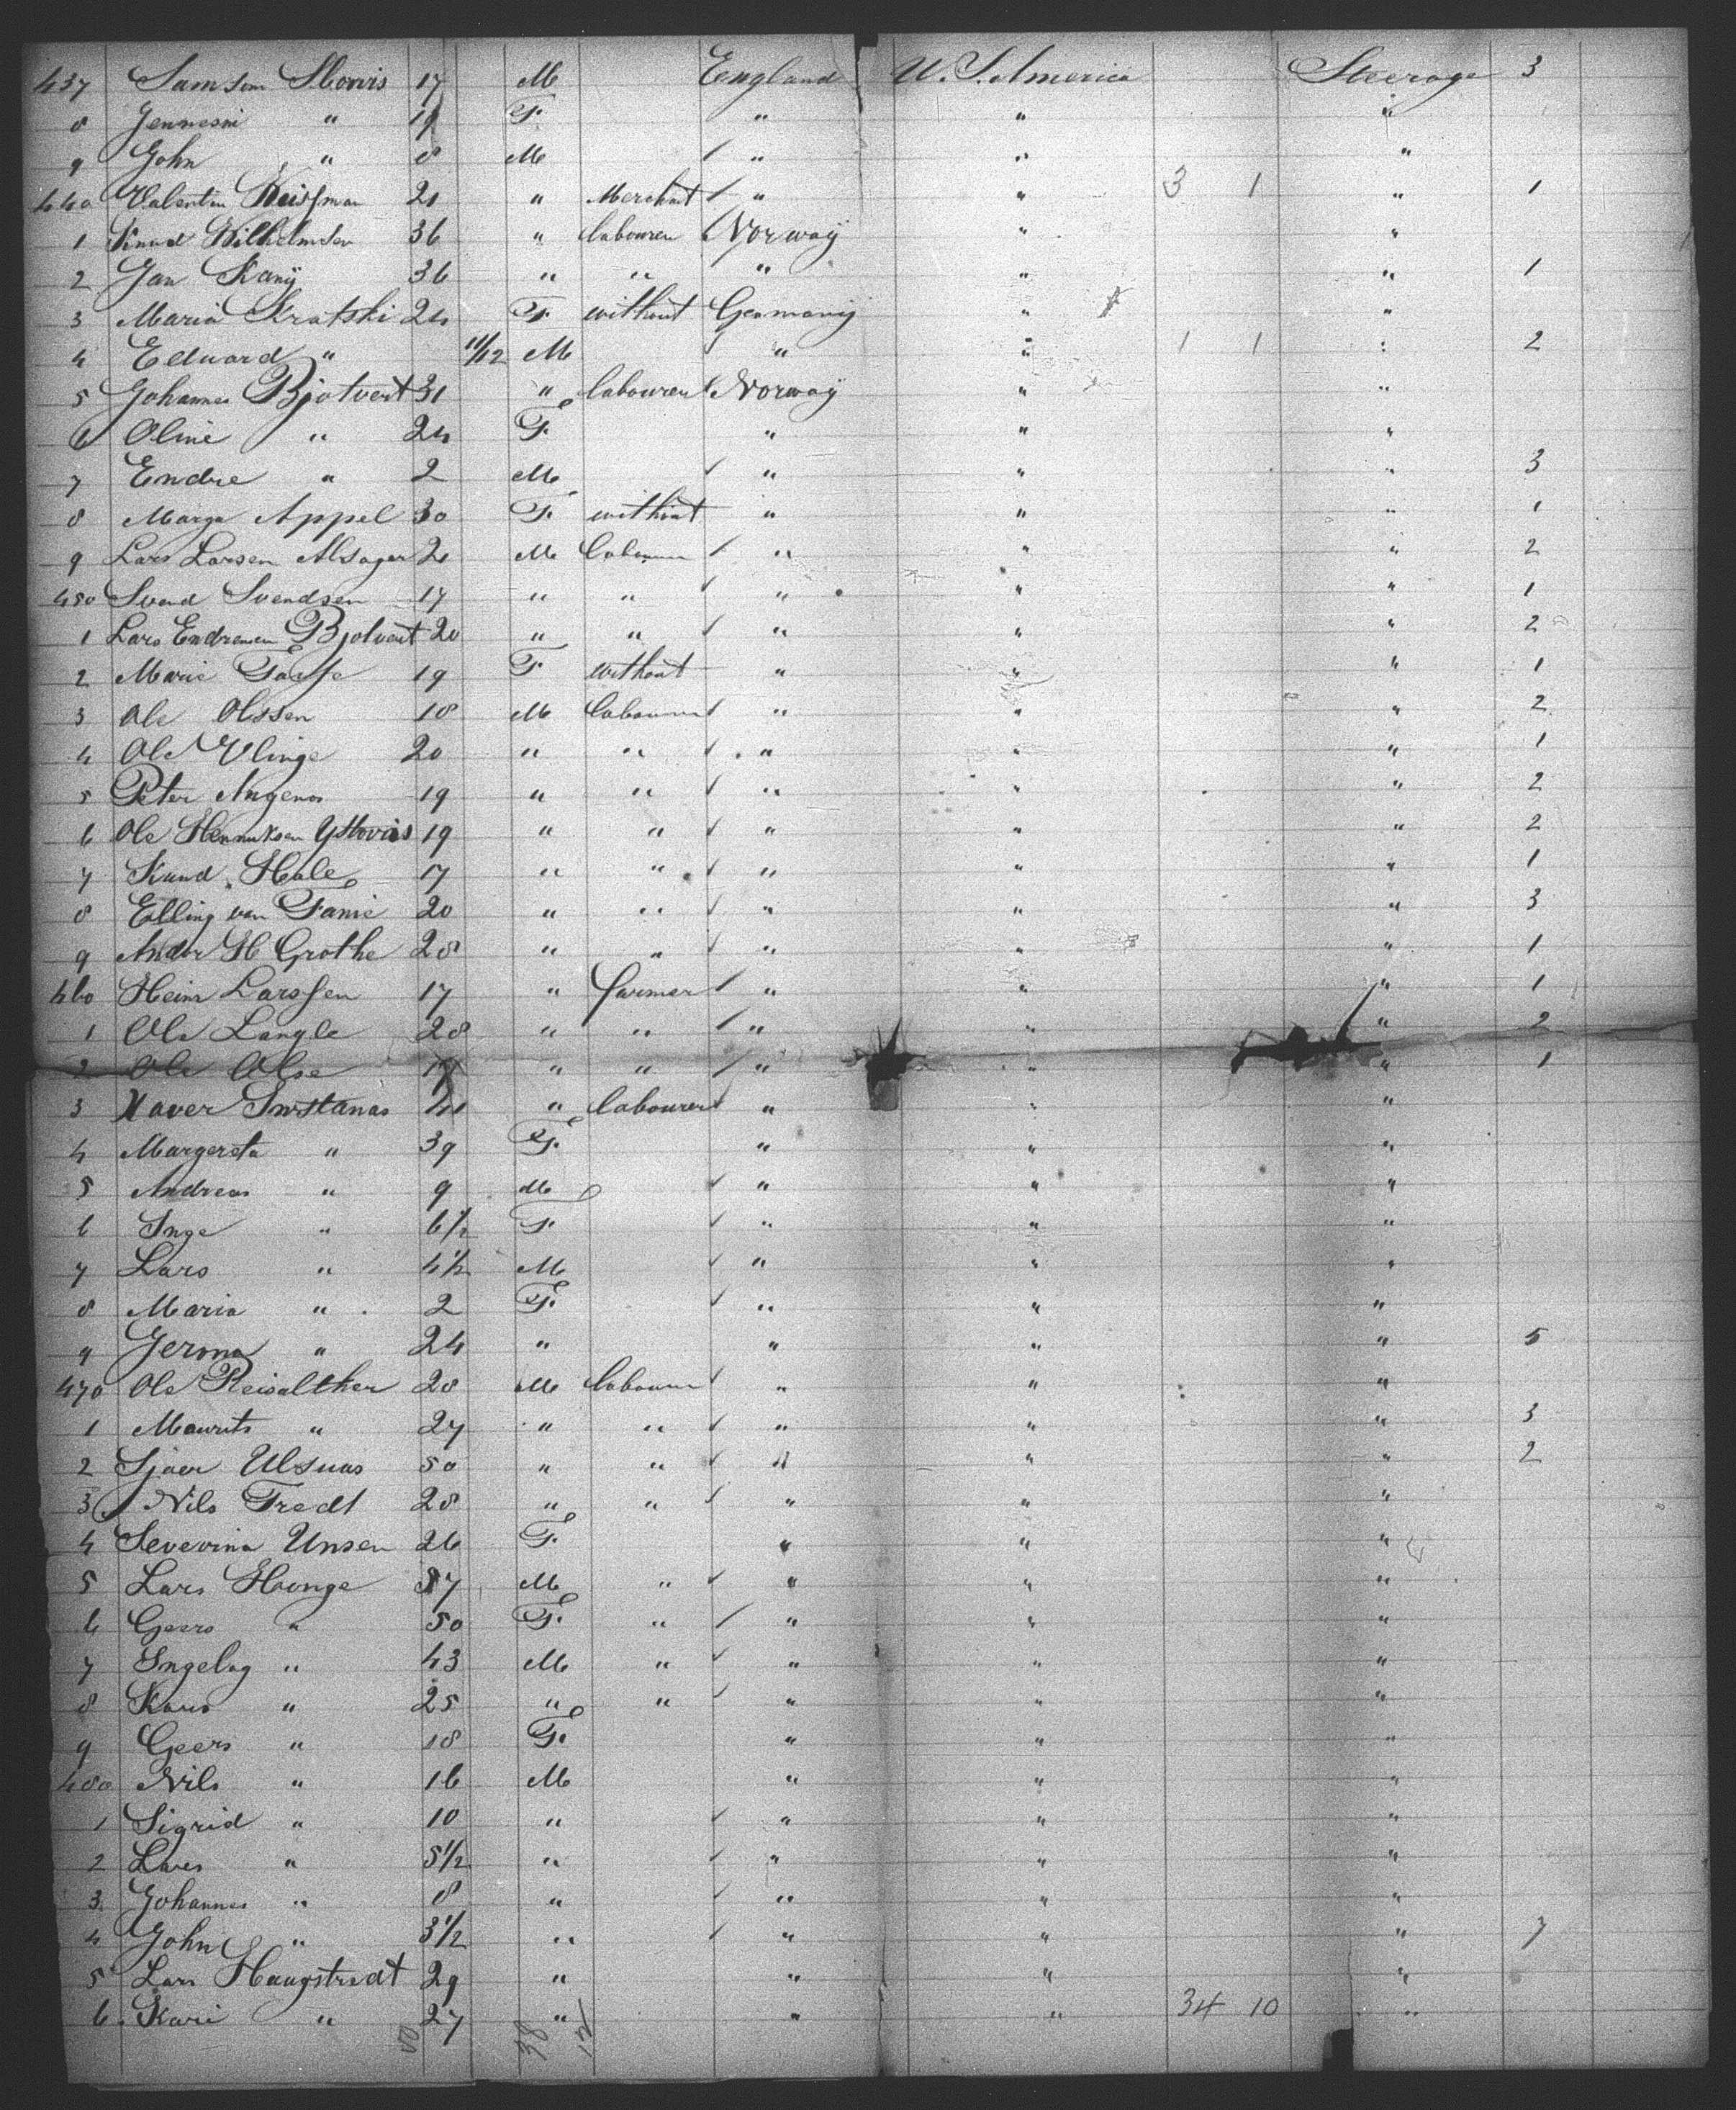 437 Samson Morris 17 M England U. S. America Steerage 3
8 Jennesin " 19 F. " " "
9 John " 8 M " " "
440 Valentin 21 " Merchant " " 3 1 " 1
1 Knud Wilhelmsen 36 " labourer Norway " "
2 Jan Kanij 36 " " " " " 1
3 Maria Kratski 24 F. without Germany " "
4 Eduard " 11/12 M " " 1 1 " 2
5 Johannes Bjotvert 31 " labourer Norway " "
6 Oline " 24 F. " " "
7 Endre " 2 M " " " 3
8 Marga Appel 30 F. without " " " 1
9 Lars Larsen Alsager 21 M labourer " " " 2
450 Svend Svendsen 17 " " " " " 1
1 Lars Endresen Bjolvert 20 " " " " " 2
2 Marie 19 F. without " " " 1
3 Ole Olssen 18 M labourer " " " 2
4 Ole Vlinge 20 " " " " " 1
5 Peter Angenos 19 " " " " " 2
6 Ole 19 " " " " " 2
7 Kund Hole 17 " " " " " 1
8 Elling van Fanie 20 " " " " " 3
9 Ander H Grothe 28 " " " " " 1
460 Heim Larssen 17 " farmer " " " 1
1 Ole Langle 28 " " " " " 2
2 Ole Olse 17 " " " " " 1
3 Xaver 41 " labourer " " "
4 Margereta " 39 F. " " "
5 Andreas " 9 M " " "
6 Inge " 6 1/2 F. " " "
7 Lars " 4 1/2 M " " "
8 Maria " 2 F. " " "
9 Jerona " 24 " " " " 5
470 Ole Reisalther 28 M labourer " " "
1 Maurits " 27 " " " " " 3
2 Sjaer Ulsuas 50 " " " " " 2
3 Nils Tredt 28 " " " " "
4 Severina Unsen 26 F. " " "
5 Lars Hounge 57 M " " " "
6 Geers " 50 F. " " " "
7 Ingelag " 43 M " " " "
8 Kars " 25 " " " " "
9 Geers " 18 F. " " "
480 Nils " 16 M " " "
1 Sigrid " 10 " " " "
2 Lars " 5 1/2 " " " "
3 Johannes " 8 " " " "
4 John " 3 1/2 " " " " 7
5 Lars Haugstredt 29 " " " "
6 Kari " 27 " " " 34 10 "
50 38 12